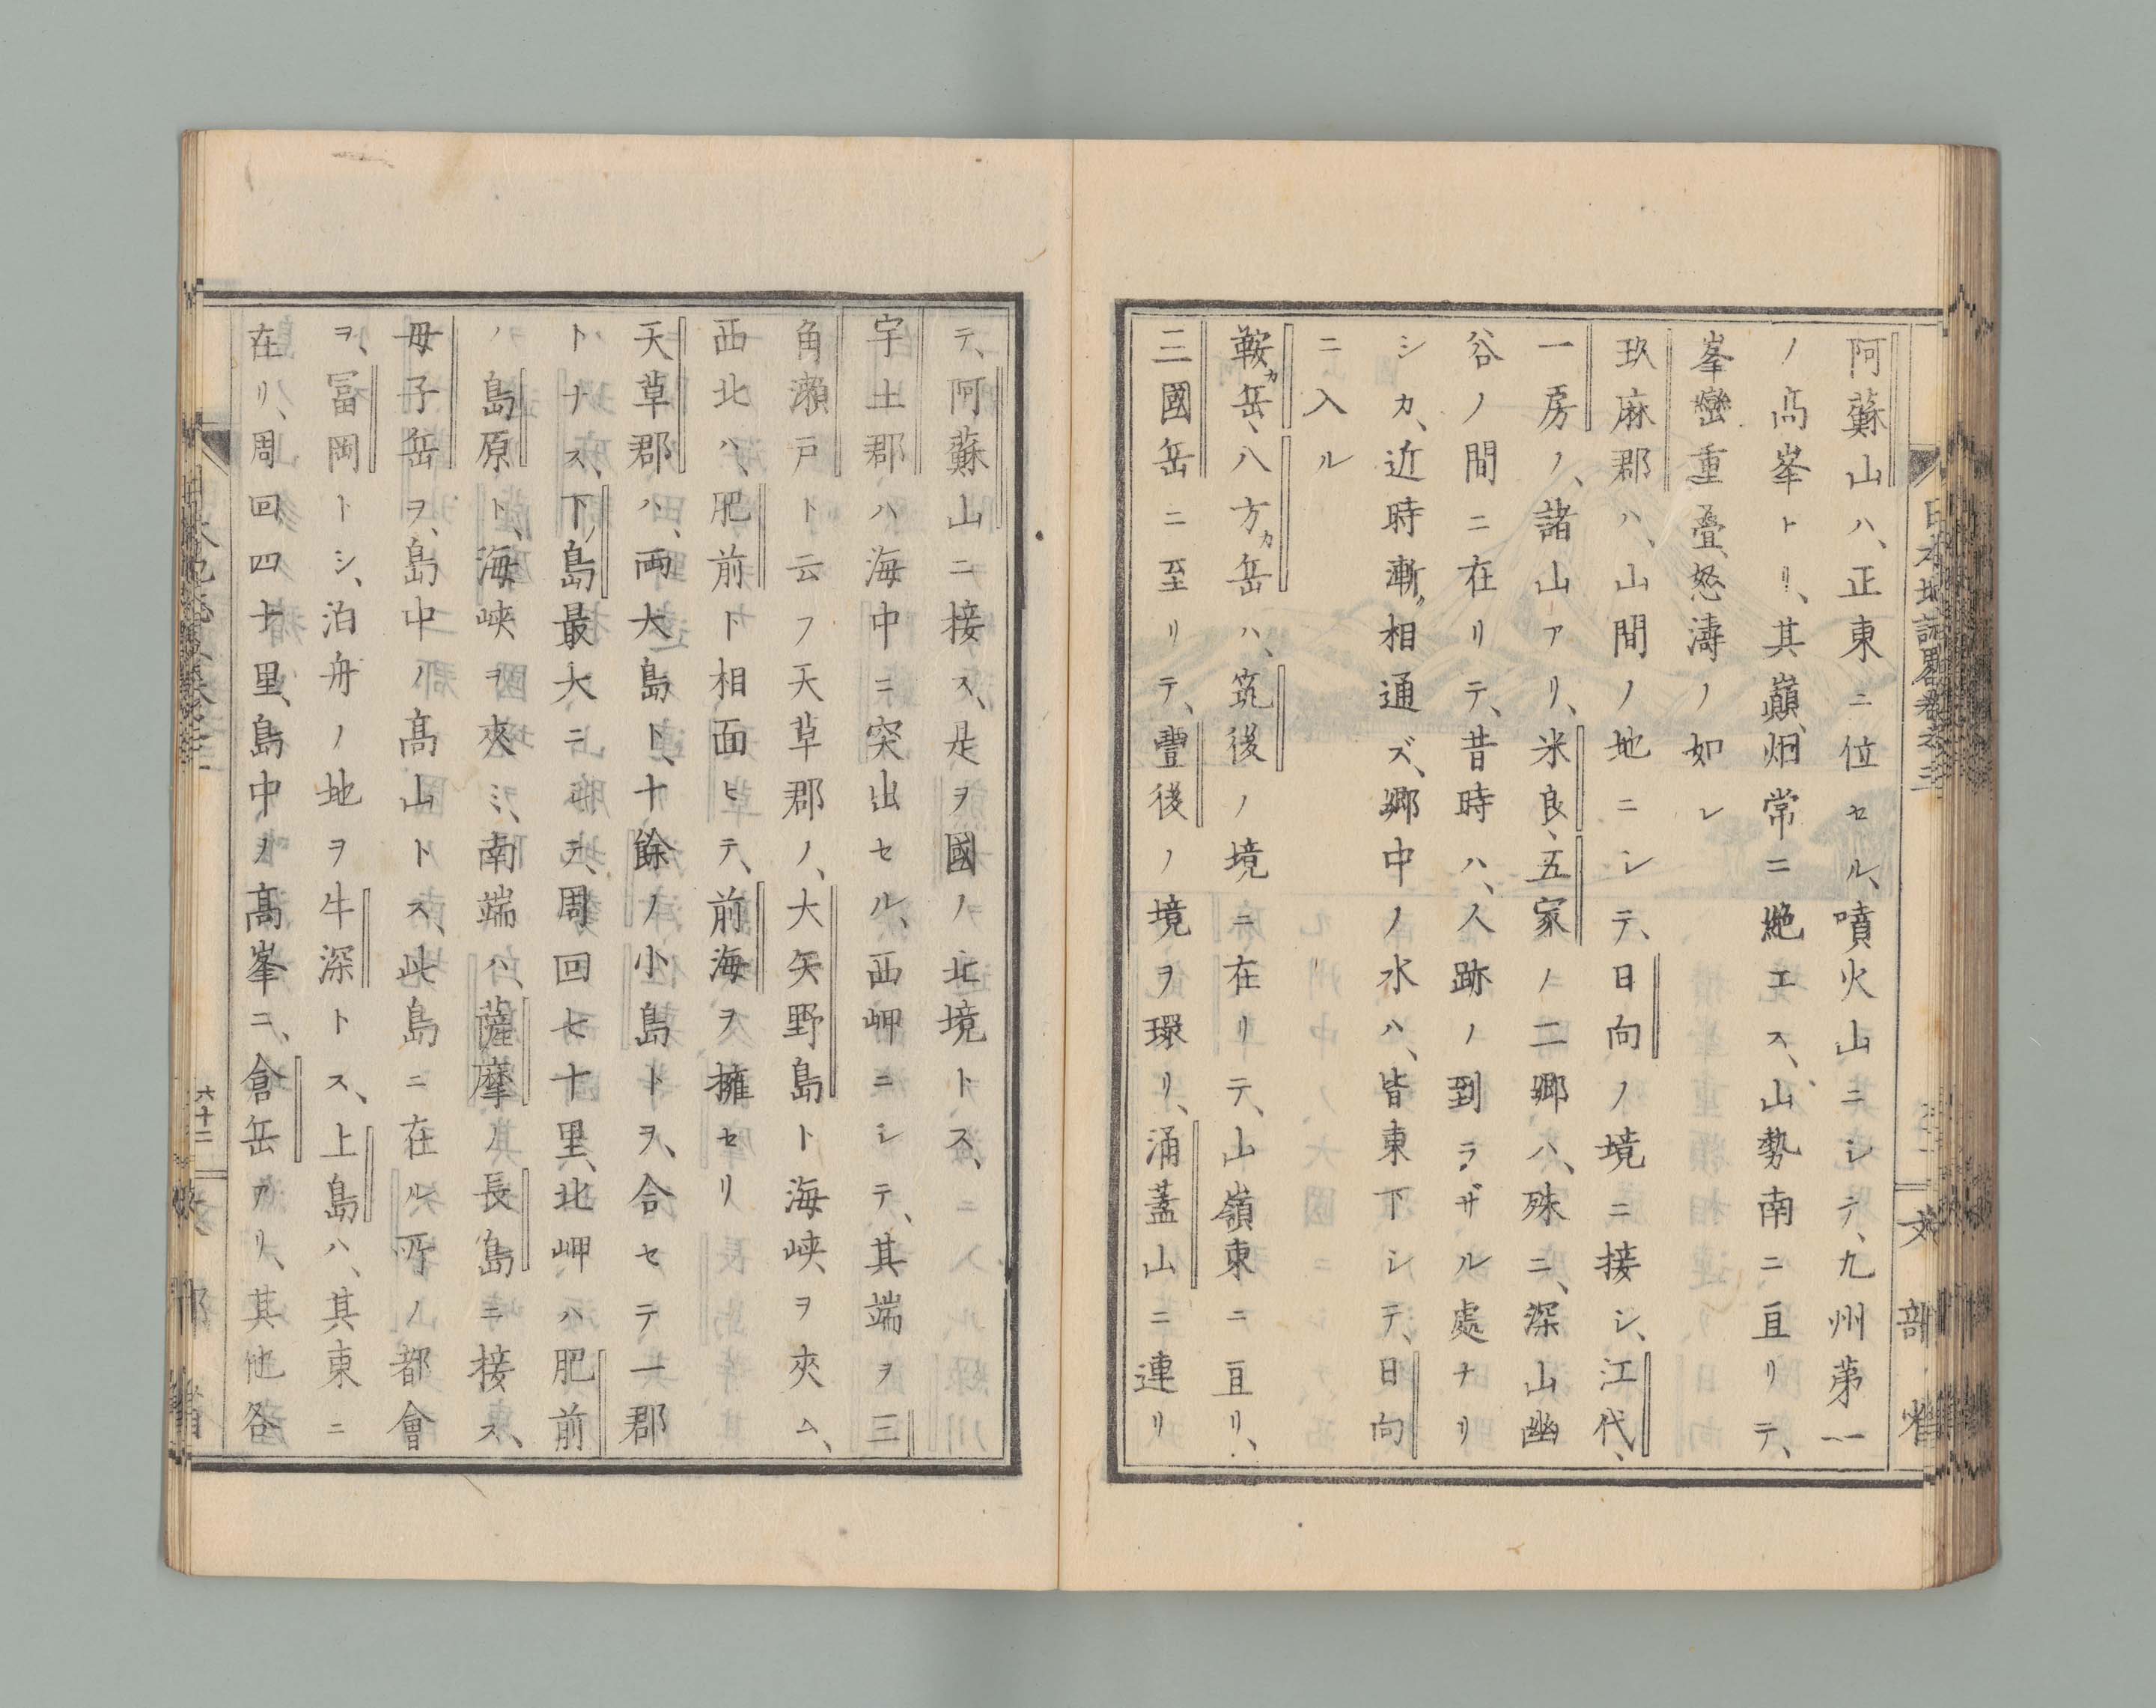 阿蘇山ハ、正東ニ位セル、噴火山ニシテ、九州第一
ノ高峯トリ、其巓、烟常ニ絶エス、山勢南ニ亘リテ、
峯巒重疊、怒濤ノ如シ
玖麻郡ハ、山間ノ地ニシテ、日向ノ境ニ接シ、江代、
一房ノ、諸山アリ、米良、五家ノ二郷ハ、殊ニ、深山幽
谷ノ間ニ在リテ、昔時ハ、人跡ノ到ラザル處ナリ
シカ、近時漸ク相通ズ、郷中ノ水ハ、皆東下シテ、日向
ニ入ル
鞍カ岳、八方カ岳ハ、筑後ノ境ニ在リテ、山嶺東ニ亘リ、
三國岳ニ至リテ、豐後ノ境ヲ環リ、涌蓋山ニ連リ
日本地誌畧卷之三
文部省
テ、阿蘇山ニ接ス、是ヲ國ノ北境トス、
宇土郡ハ海中ニ突出セル、西岬ニシテ、其端ヲ三
角瀬戸ト云フ天草郡ノ、大矢野島ト海峡ヲ夾ム、
西北ハ、肥前ト相面ヒテ、前海ヲ擁セリ
天草郡ハ、両大島ト、十餘ノ小島トヲ、合セテ一郡
トナス、下ノ島最大ニシテ、周回七十里、北岬ハ肥前
ノ島原ト、海峡ヲ夾ミ、南端ハ、薩摩ノ長島ニ接ス、
母子岳ヲ、島中ノ高山トス、此島ニ在ル所ノ都會
ヲ、冨岡トシ、泊舟ノ地ヲ牛深トス、上島ハ、其東ニ
在リ、周回四十里、島中ヲ高峯ニ、倉岳アリ、其他各
六十二